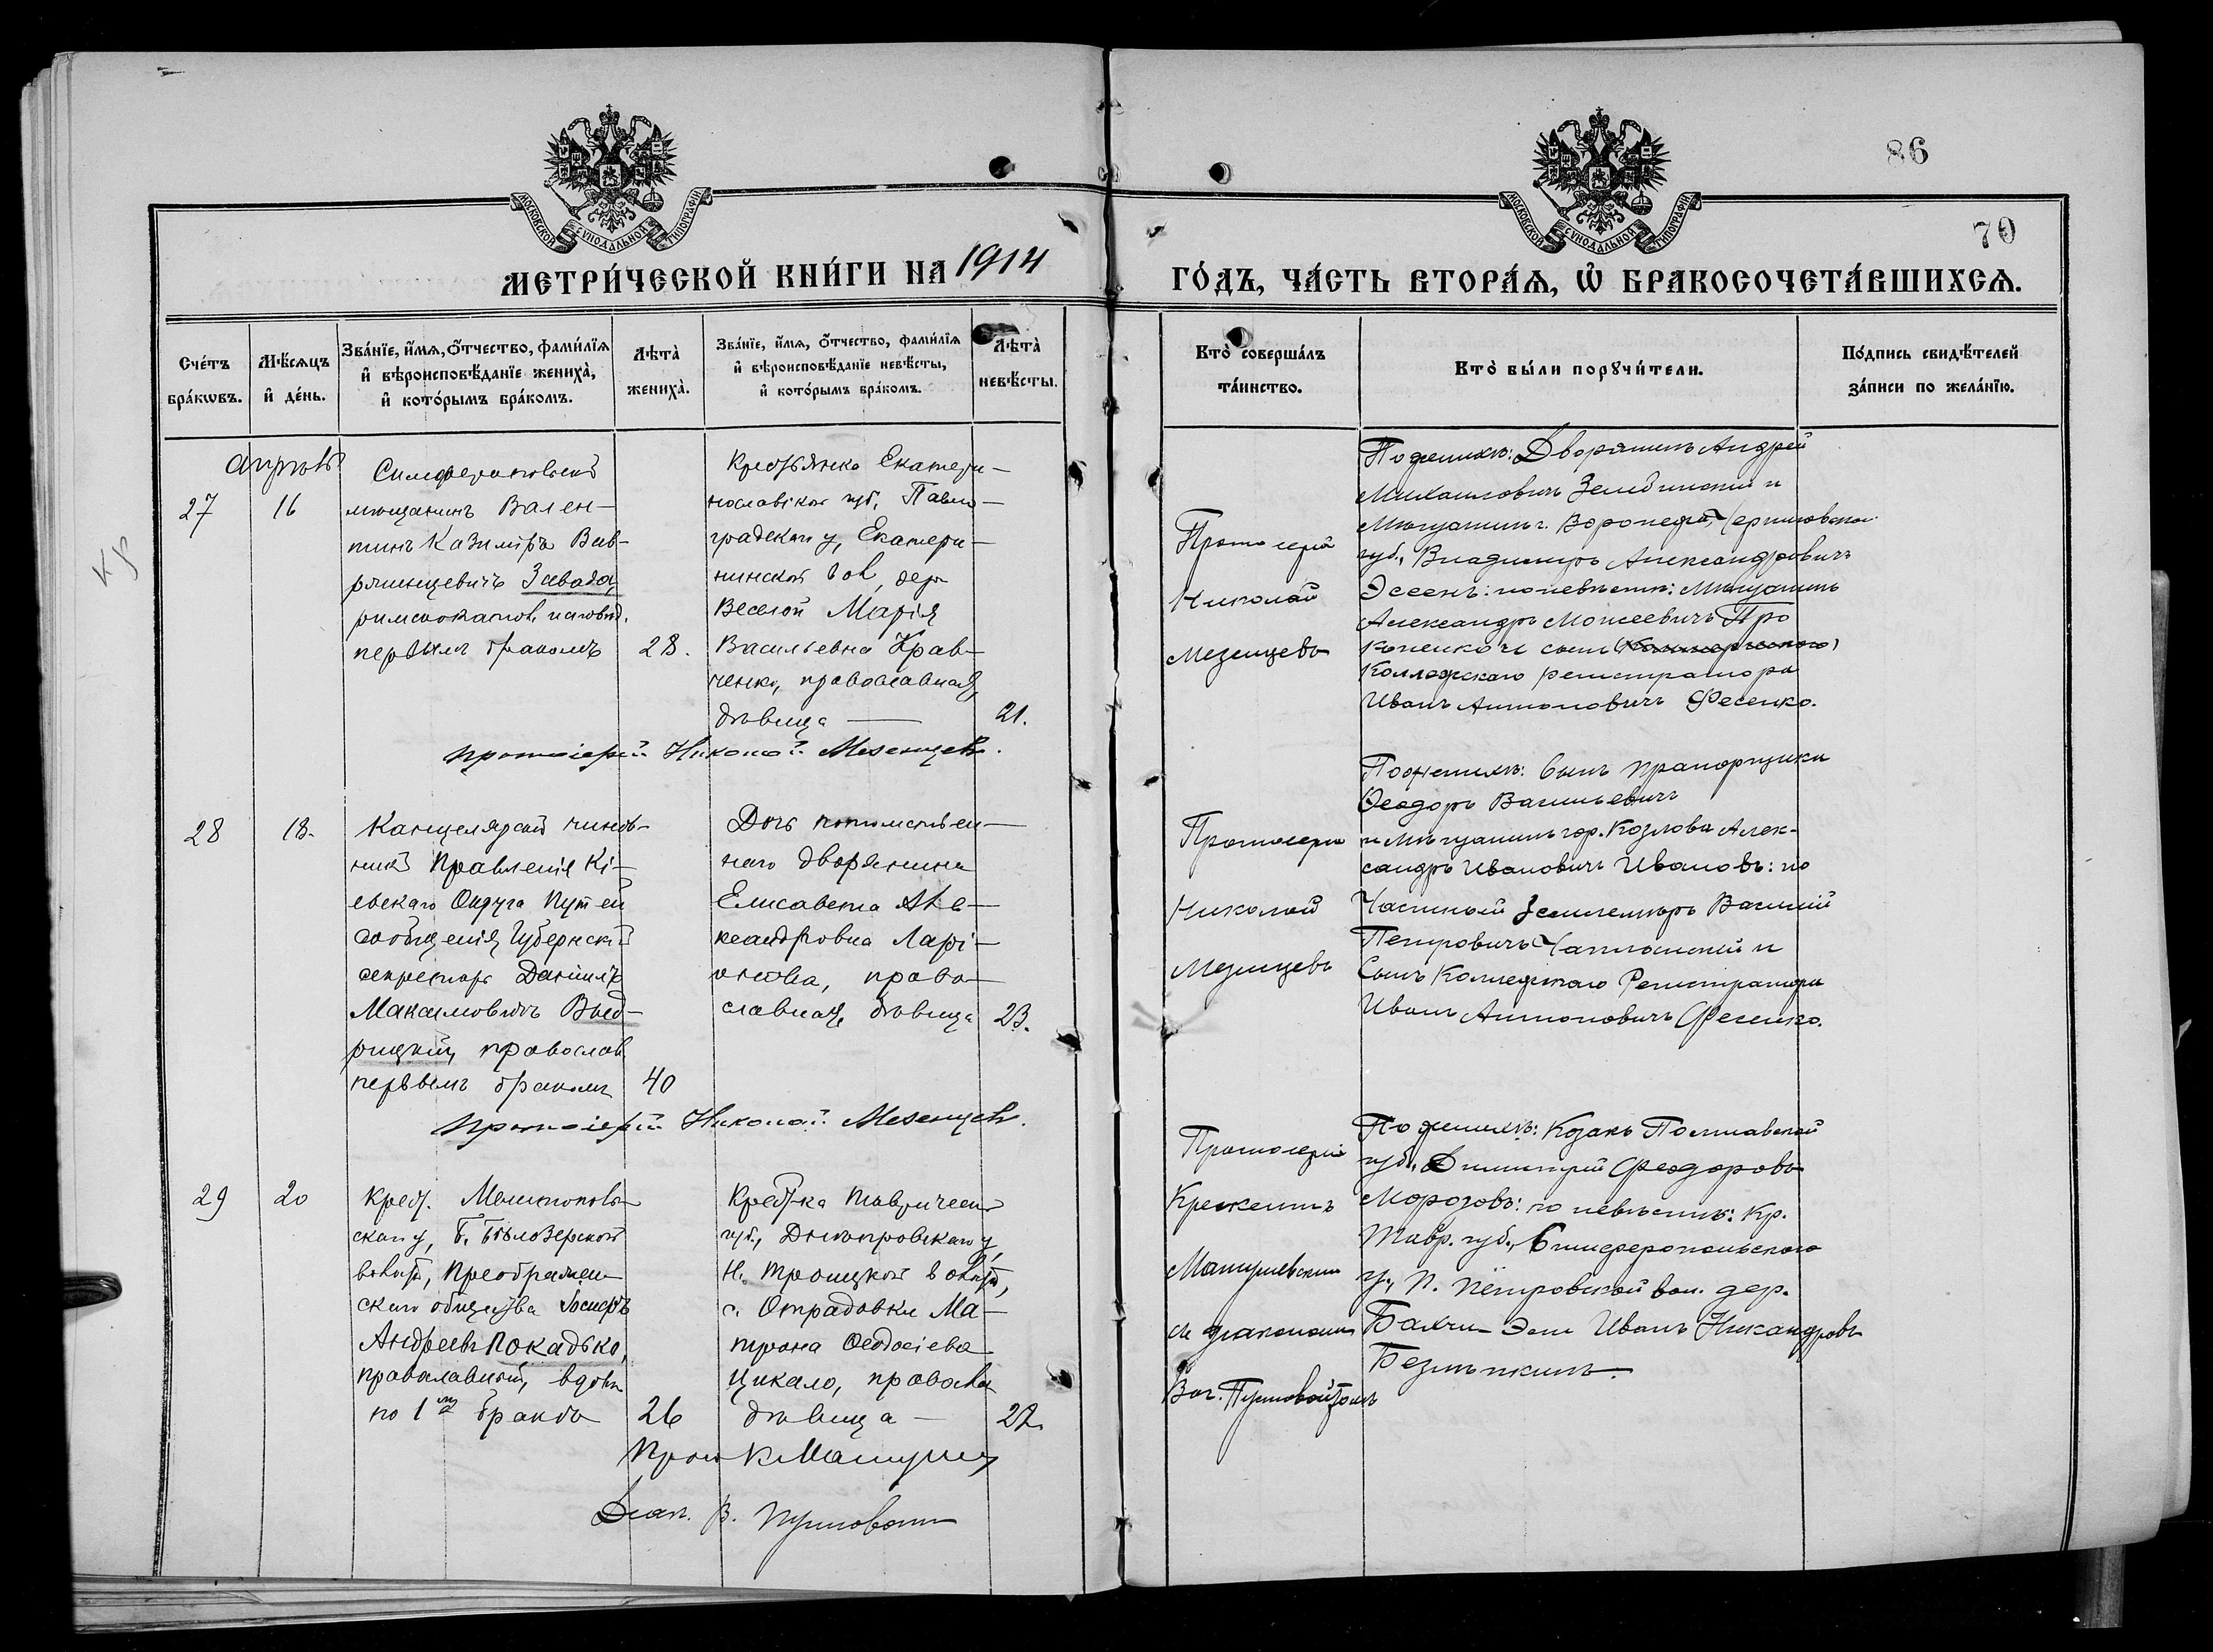 86
70
МОСКОВСКОЙ СѴНОДАЛЬНОЙ ТИПОГРАФІИ
МОСКОВСКОЙ СѴНОДАЛЬНОЙ ТИПОГРАФІИ
МЕТРИ́ЧЕСКОЙ КНИ́ГИ НА 1914
ГО́ДЪ, ЧА́СТЬ ВТОРА́Ѧ, Ѿ БРАКОСОЧЕТА́ВШИХСѦ.
Сче́тъ бра́кѡвъ.
Мѣ́сѧцъ и҆ де́нь.
Зва́нїе, и҆́мѧ, ѻ҆́тчество, фами́лїѧ
и҆ вѣроисповѣ́данїе жениха̀,
и҆ кото́рымъ бра́комъ.
Лѣта̀ жениха̀.
Зва́нїе, и҆́мѧ, ѻ҆́тчество, фами́лїѧ
и҆ вѣроисповѣ́данїе невѣ́сты,
и҆ кото́рымъ бра́комъ.
Лѣта̀ невѣ́сты.
Кто̀ соверша́лъ та́инство.
Кто̀ бы́ли порꙋчи́тели.
По́дпись свидѣ́телей за́писи по жела́нїю.
Апрѣль
27
16
Симферопольскій
мѣщанинъ Вален-
тинъ Казиміръ Вав-
рженцевичъ Завада,
римскокатол. исповѣд.
первымъ бракомъ
28.
Крестьянка Екатери-
нославской губ., Павло-
градскаго у, Екатери-
нинской вол, дер
Веселой Марія
Васильевна Крав-
ченко, православная
дѣвица
21.
Протоіерей Николай Мезенцевъ.
Протоіерей
Николай
Мезенцевъ
По женихѣ: Дворянинъ Андрей
Михаиловичъ и
Мѣщанинъ г. Воронежа, Черниговской
губ., Владимиръ Александровичъ
Эссенъ: по невѣстѣ: Мѣщанинъ
Александръ Моисеевичъ Про
копенко и сынъ
Коллежскаго регистратора
Иванъ Антоновичъ Фесенко.
28
18.
Канцелярскій чинов-
никъ Правленія Кі-
евскаго Округа Путей
сообщенія Губернскій
секретарь Даніилъ
Максимовичъ Выд-
рицкій, православ
первымъ бракомъ
40
Дочь потомствен-
наго дворянина
Елисавета Але-
ксандровна Ларі-
онова, право-
славная, дѣвица
23.
Протоіерей Николай Мезенцевъ.
Протоіерей
Николай
Мезенцевъ
По женихѣ: Сынъ прапорщика
Ѳеодоръ Васильевичъ
и Мѣщанинъ гор. Козлова Алек-
сандръ Ивановичъ Ивановъ: по
Частный землемѣръ Василій
Петровичъ Чаплинскій и
Сынъ Коллежскаго Регистратора
Иванъ Антоновичъ Фесенко.
29
20
Крест. Мелитополь-
скаго у, Б. Бѣлозерской
волости, Преображен-
скаго общества Іосифъ
Андреевъ Покадько,
православный, вдовъ
по 1мъ бракѣ
26
Крест-ка Таврической
губ., Днѣпровскаго у,
Н. Троицкой волости,
с. Отрадовки Ма-
трона Ѳеодосіева
Цикало, правосла
дѣвица
22.
Прот К Мацуев
Діак. В. Пустовой
Протоіерей
съ діакономъ
Вас. Пустовойтомъ
По женихѣ: Козакъ Полтавской
губ. Димитрій Ѳеодоровъ
Морозовъ: по невѣстѣ: Кр.
Тавр. губ., Симферопольскаго
у., П. Петровской вол. дер.
Бахчи-Эли Иванъ Никандровъ